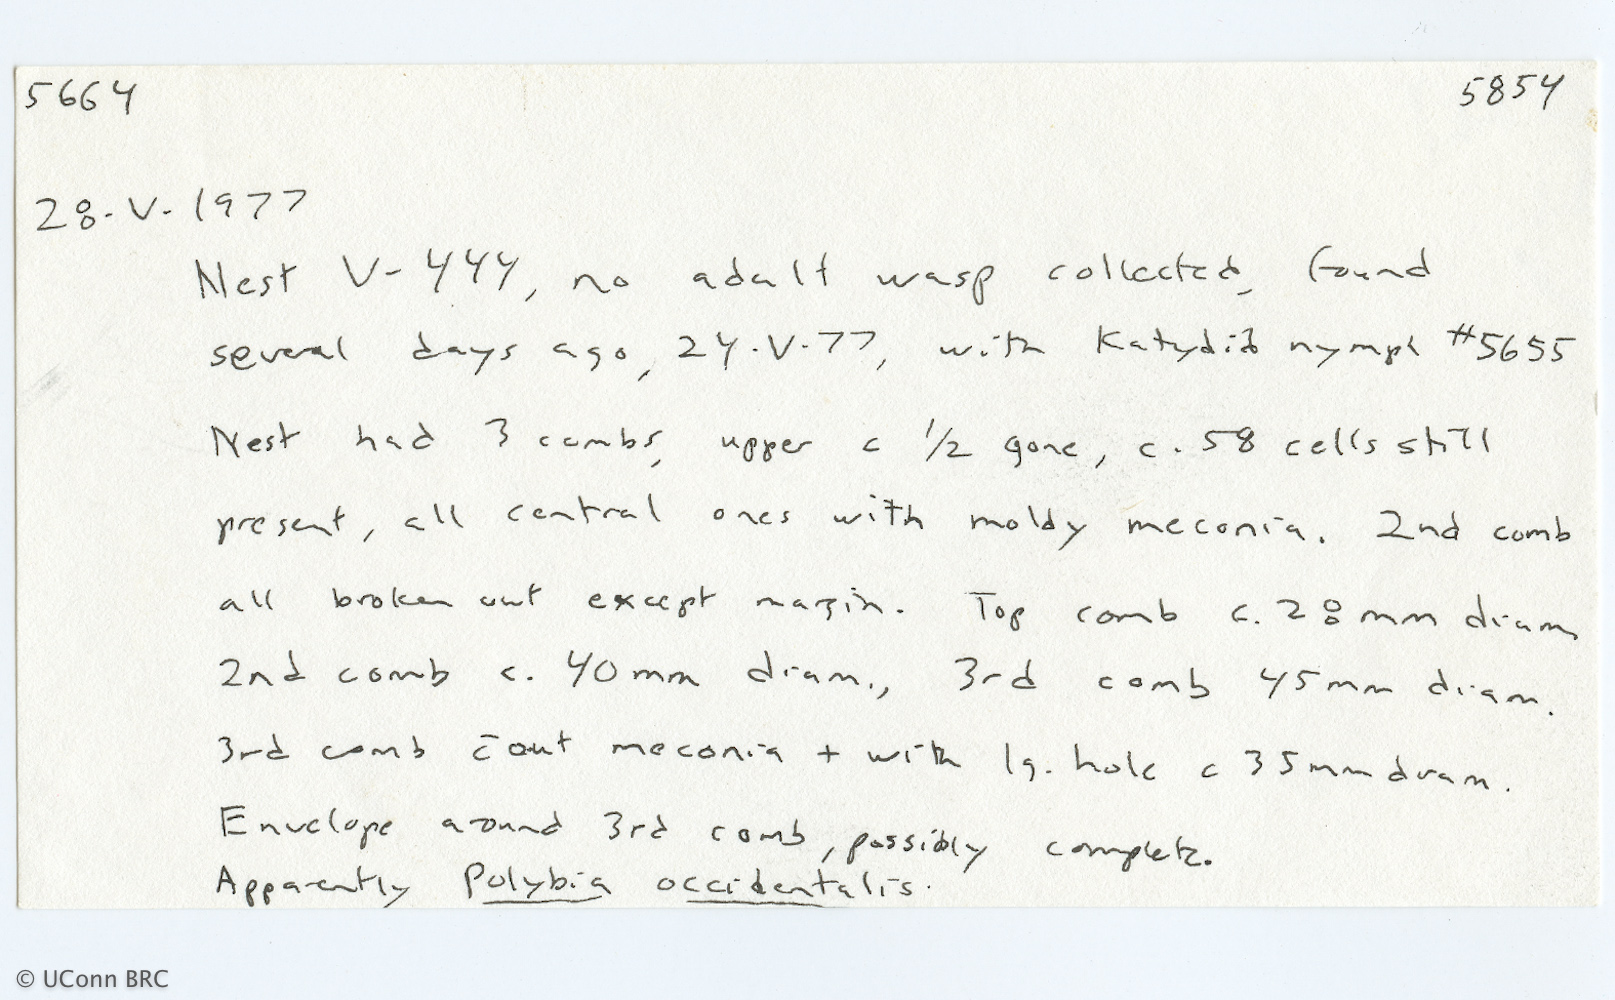 5664 5854
28-V-1977
Nest V-444, no adult wasp collected, found
several days ago, 24.V.77, with Katydid nymph #5655
Nest had 3 combs, upper c 1/2 gone, c. 58 cells still
present, all central ones with moldy meconia. 2nd comb
all broken out except margin. Top comb c. 28 mm diam,
2nd comb c. 40 mm diam., 3rd comb 45 mm diam.
3rd comb c̄out meconia + with lg. hole c 35 mm diam.
Envelope around 3rd comb, possibly complete.
Apparently Polybia occidentalis.
© UConn BRC